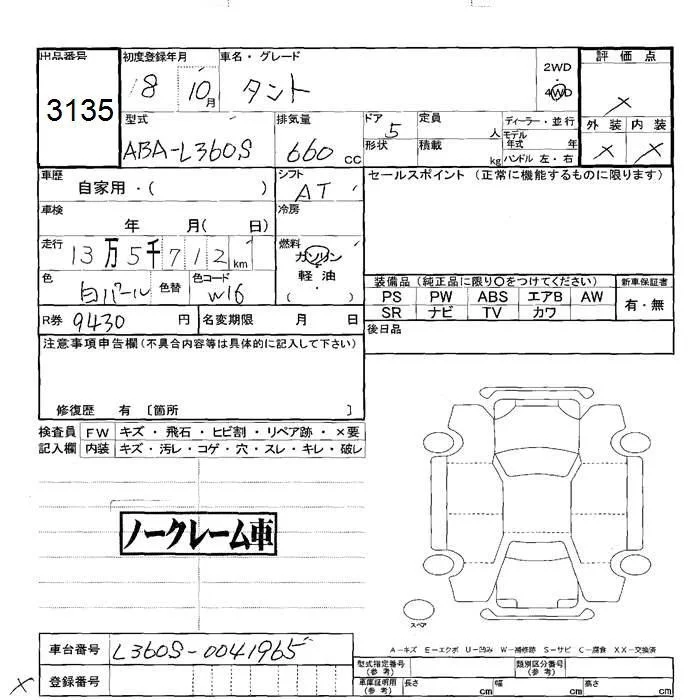 出品番号 初度登録年月 車名・グレード 2WD 評価点
3135 18 10月 タント 4WD ×
型式 排気量 ドア 5 定員 人 ディーラー・並行 外装 内装
ABA-L360S 660cc 形状 積載 kg モデル年式 年 × ×
ハンドル 左・右
車歴 自家用・( ) シフト AT セールスポイント (正常に機能するものに限ります)
車検 年 月( 日) 冷房
走行 13万5千712km 燃料 ガソリン
軽・油
( )
色 白パール 色替 色コード W16
装備品 (純正品に限り〇をつけてください) 新車保証書
PS PW ABS エアB AW 有・無
SR ナビ TV カワ
R券 9430 円 名変期限 月 日
後日品
注意事項申告欄(不具合内容等は具体的に記入して下さい)
修復歴 有 〔箇所 〕
検査員 FW キズ・飛石・ヒビ割・リペア跡・×要
記入欄 内装 キズ・汚レ・コゲ・穴・スレ・キレ・破レ
ノークレーム車
スペア
A-キズ E-エクボ U-凹み W-補修跡 S-サビ C-腐食 XX-交換済
車台番号 L360S-0041965
型式指定番号(参考) 類別区分番号(参考)
× 登録番号
車庫証明用(参考) 長さ cm 幅 cm 高さ cm